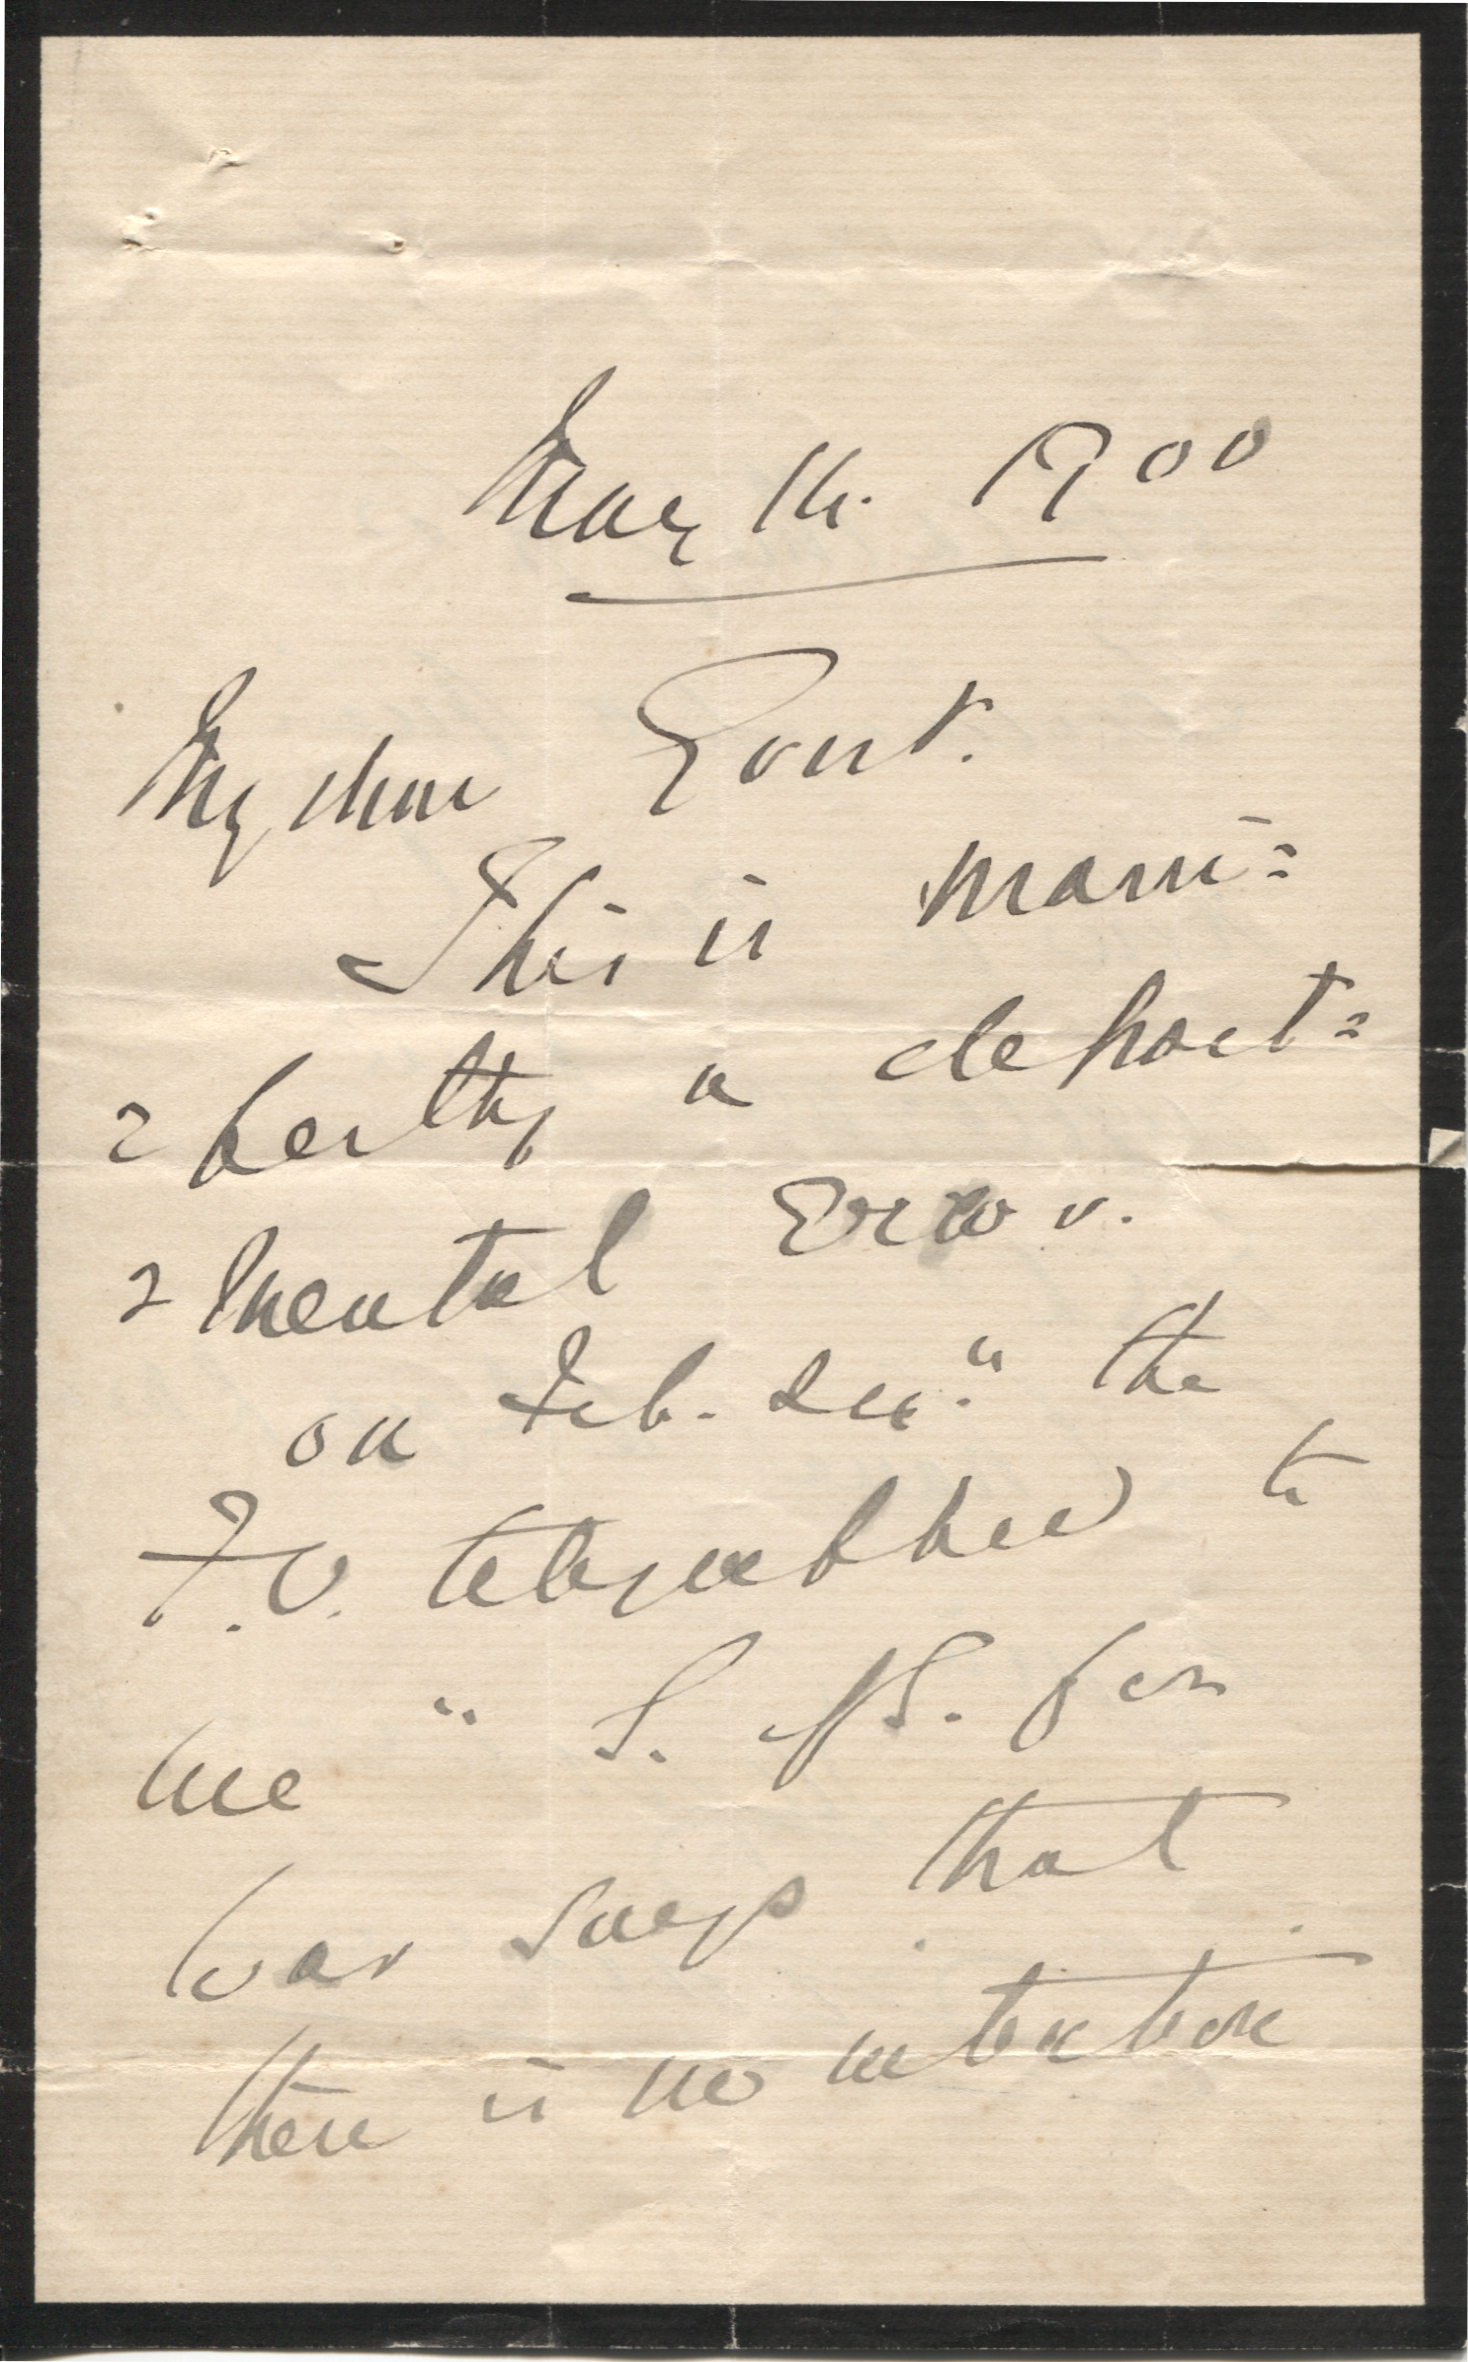 May 1900
My dear Gorst.
This is mani=
=festly a depart=
=mental error.
On Feb. the
F.O. telegraphed to
me " S. of S. for
War says that
there is no intention